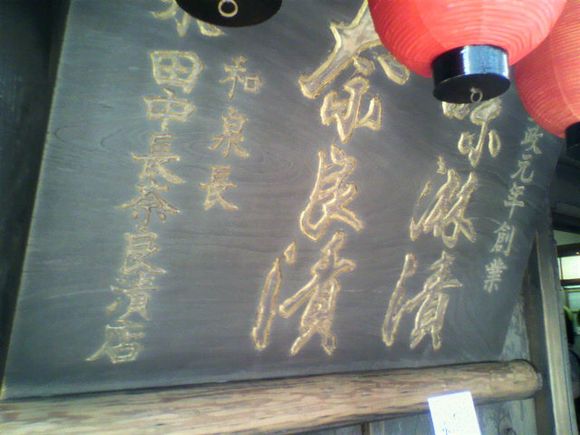 政元年創業
味淋漬
奈良漬
和泉長
田中長奈良漬店